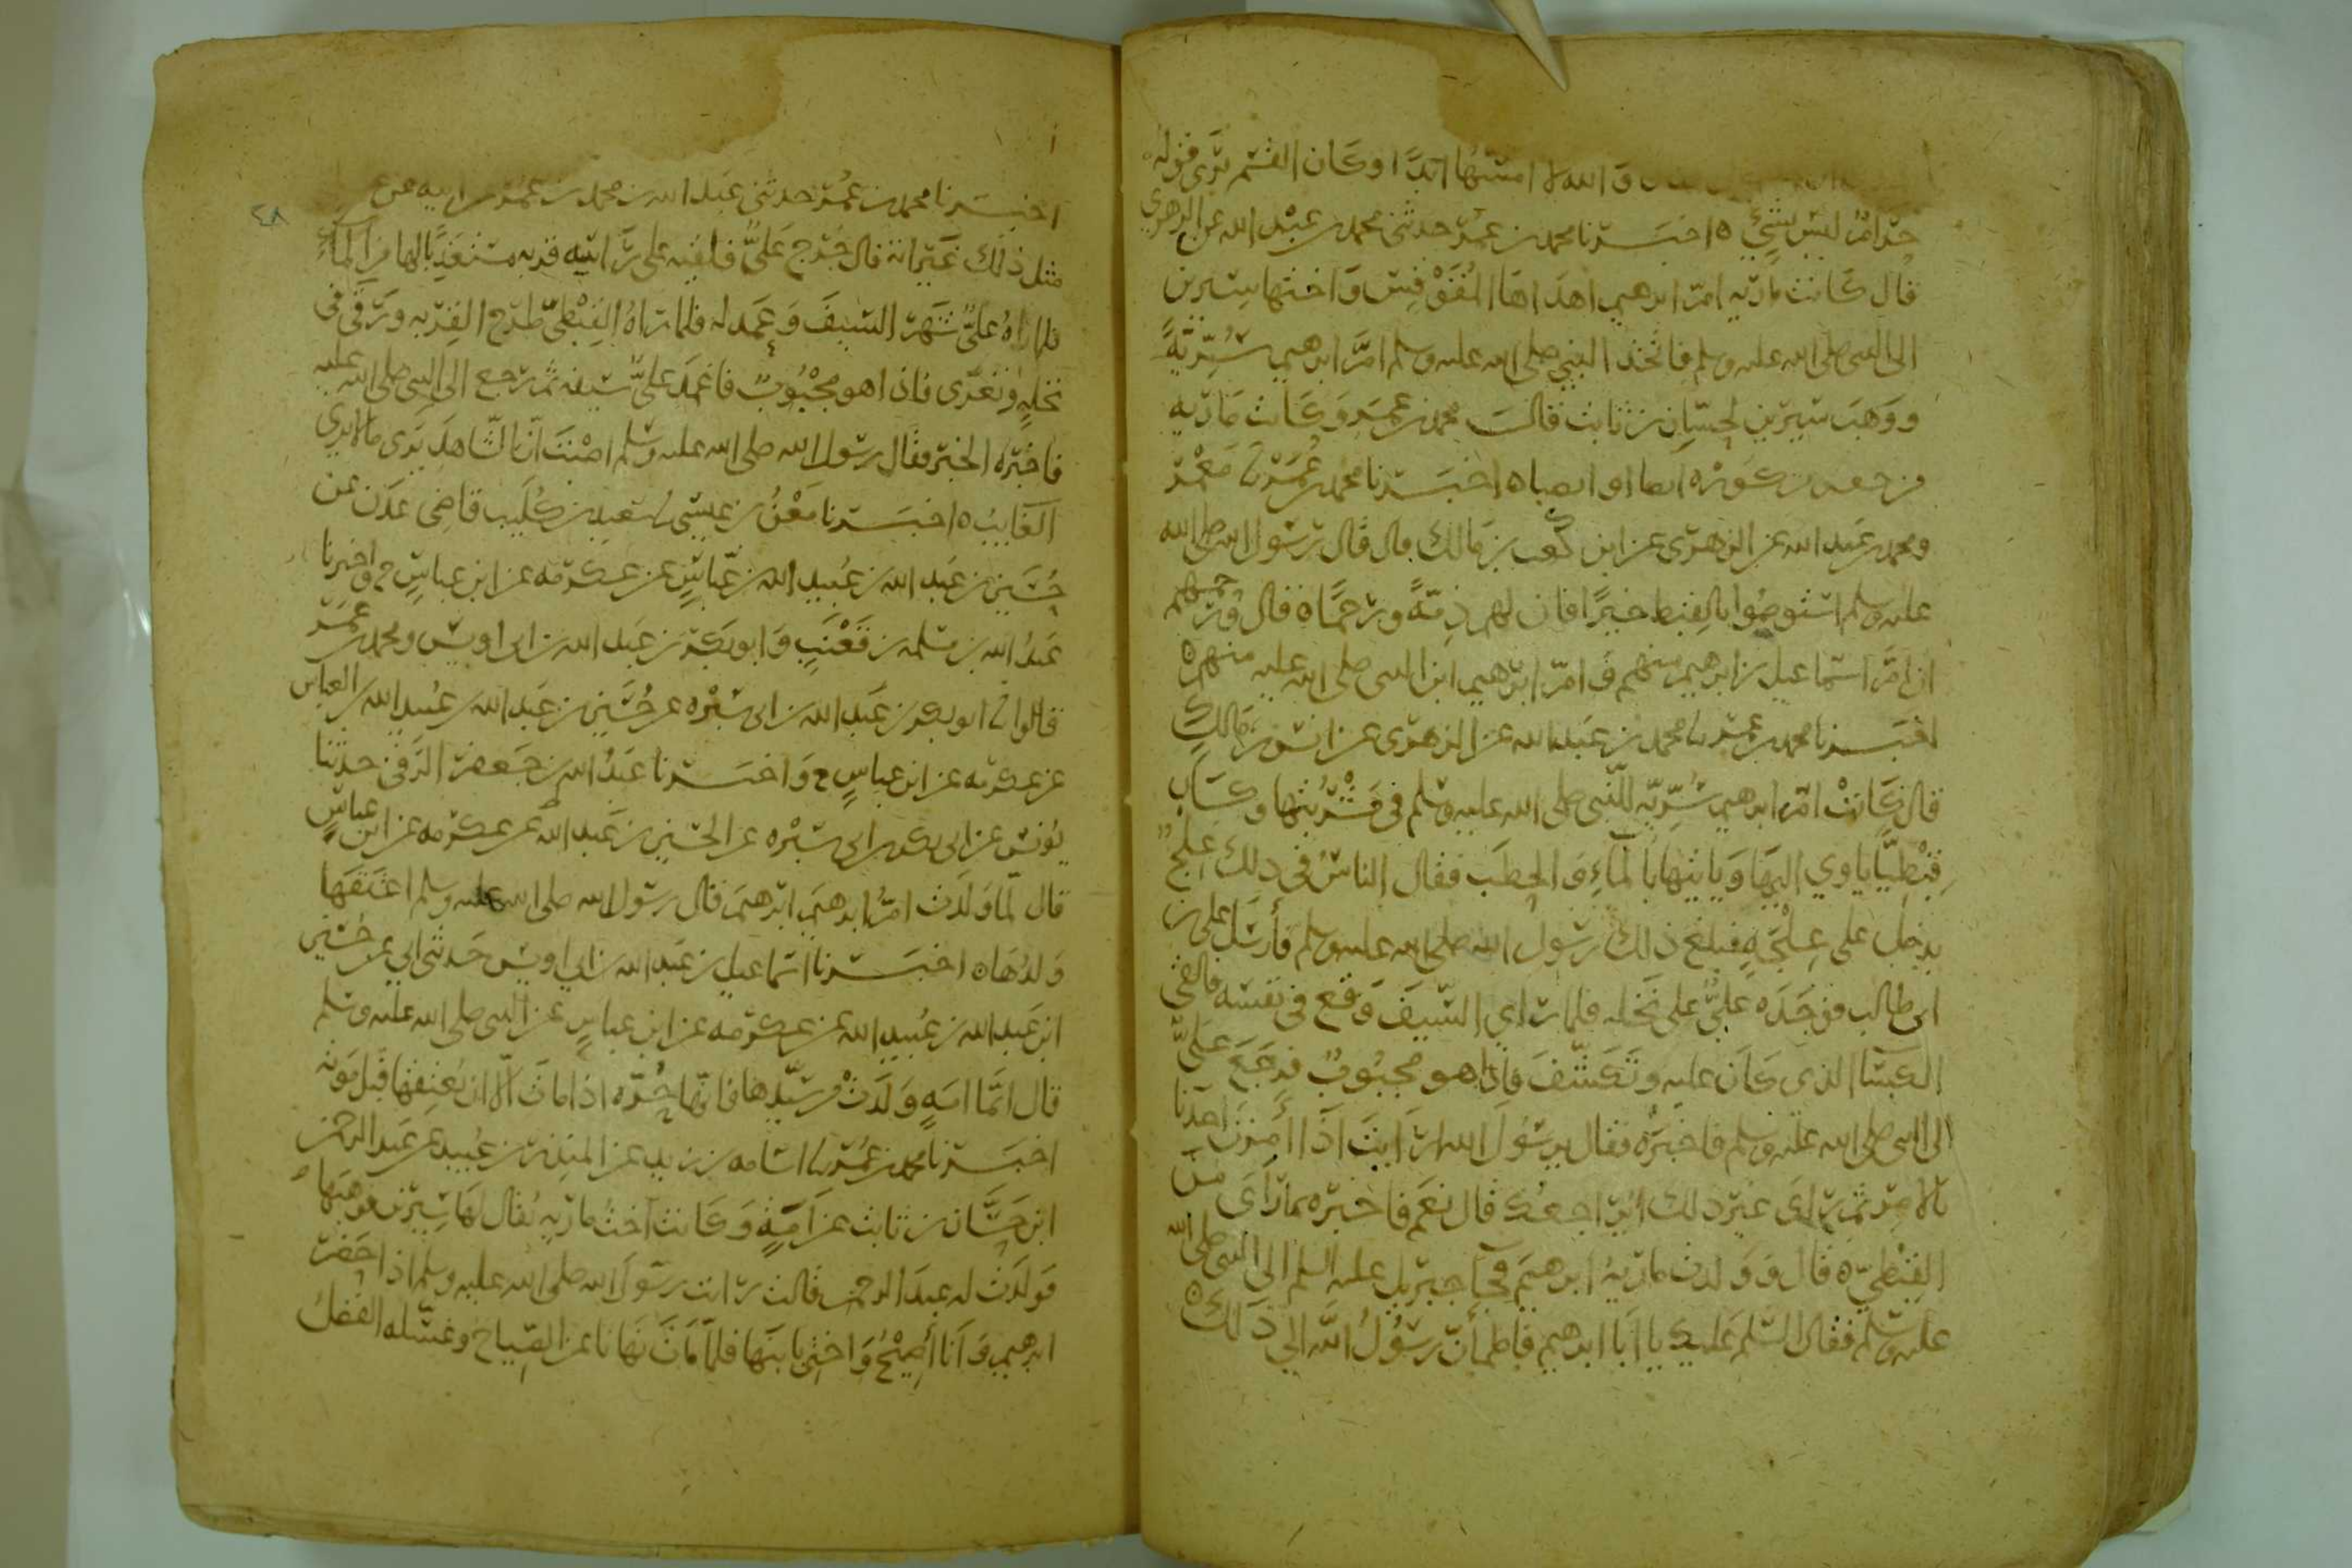 والله لا امسها ابدا وكان القسم يرى قوله
حرام ليس بشيء ه اخبرنا محمد بن عمر حدثني محمد بن عبد الله عن الزهري
قال كانت مارية ام ابرهيم اهداها المقوقس واختها سيرين
الى النبي صلى الله عليه وسلم فاتخذ النبي صلى الله عليه وسلم ام ابرهيم سرية
ووهب سيرين لحسان بن ثابت قال محمد بن عمر وكانت مارية
من كورة انصنا ه اخبرنا محمد بن عمر نا معمر
ومحمد بن عبد الله عن الزهري عن ابن كعب بن مالك قال قال رسول الله صلى الله
عليه وسلم استوصوا بالقبط خيرا فان لهم ذمة ورحما ه قال ورحمهم
ان ام اسماعيل بن ابرهيم منهم وام ابرهيم ابن النبي صلى الله عليه منهم ه
اخبرنا محمد بن عمر نا محمد بن عبد الله عن الزهري عن انس بن مالك
قال كانت ام ابرهيم سرية للنبي صلى الله عليه وسلم في مشربتها وكان
قبطيا ياوي اليها وياتيها بالماء والحطب فقال الناس في ذلك علج
يدخل على علجة فبلغ ذلك رسول الله صلى الله عليه وسلم فأرسل على بن
ابي طالب فوجده علي على نخلة فلما راي السيف وقع في نفسه فالقى
الكسا الذي كان عليه وتكشف فاذا هو مجبوب فرجع علي
الى النبي صلى الله عليه وسلم فاخبره فقال يرسول الله ارايت اذا أمرت احدنا
بالامر ثم راى غير ذلك ايراجعك قال نعم فاخبره بما رأى من
القبطي ه قال وولدت مارية ابرهيم فجا جبريل عليه السلم الى النبي صلى الله
عليه وسلم فقال السلم عليك يا ابا ابرهيم فاطمأن رسول الله الى ذلك ه
٤٨
اخبرنا محمد بن عمر حدثني عبد الله بن محمد بن عمر عن ابيه عن
مثل ذلك غير انه قال خرج علي فلقيه على راسه قربه مستعذبا لها من الماء
فلما راه علي شهر السيف وعمد له فلما راه القبطي طرح القربه ورقى في
نخلة وتعرى فاذا هو مجبوب فاغمد علي سيفه ثم رجع الى النبي صلى الله عليه
فاخبره الخبر فقال رسول الله صلى الله عليه وسلم اصبت ان الشاهد يرى ما لا يرى
الغايب ه اخبرنا معن بن عيسى نا سعيد بن كليب قاضي عدن عن
حسين بن عبد الله بن عبيد الله بن عباس عن عكرمه عن ابن عباس ح واخبرنا
عبد الله بن مسلمه بن قعنب وابو بكر بن عبد الله بن ابي اويس ومحمد بن عمر
قالوا نا ابو بكر بن عبد الله بن ابي سبره عن حسين بن عبد الله بن عبيد الله بن العباس
عن عكرمه عن ابن عباس ح واخبرنا عبد الله بن جعفر الرقى حدثنا
يونس عن ابي بكر بن ابي سبره عن الحسين بن عبد الله عن عكرمه عن ابن عباس
قال لما ولدت ام ابرهيم ابرهيم قال رسول الله صلى الله عليه وسلم اعتقها
ولدها ه اخبرنا اسماعيل بن عبد الله بن ابي اويس حدثني ابي عن حسين
ابن عبد الله بن عبيد الله عن عكرمه عن ابن عباس عن النبي صلى الله عليه وسلم
قال ايما امة ولدت من سيدها فانها حرة اذا مات الا ان يعتقها قبل موته
اخبرنا محمد بن عمر نا اسامه بن زيد عن المنذر بن عبيد عن عبد الرحمن
ابن حسان بن ثابت عن امه وكانت اخت مارية يقال لها سيرين فوهبها
فولدت له عبد الرحمن قالت رايت رسول الله صلى الله عليه وسلم اذ احضر
ابرهيم وانا أصيح واختي ما ينهانا فلما مات نهانا عن الصياح وغسله الفضل